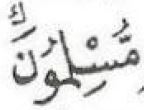 مُّسْلِمُوْنَ ك